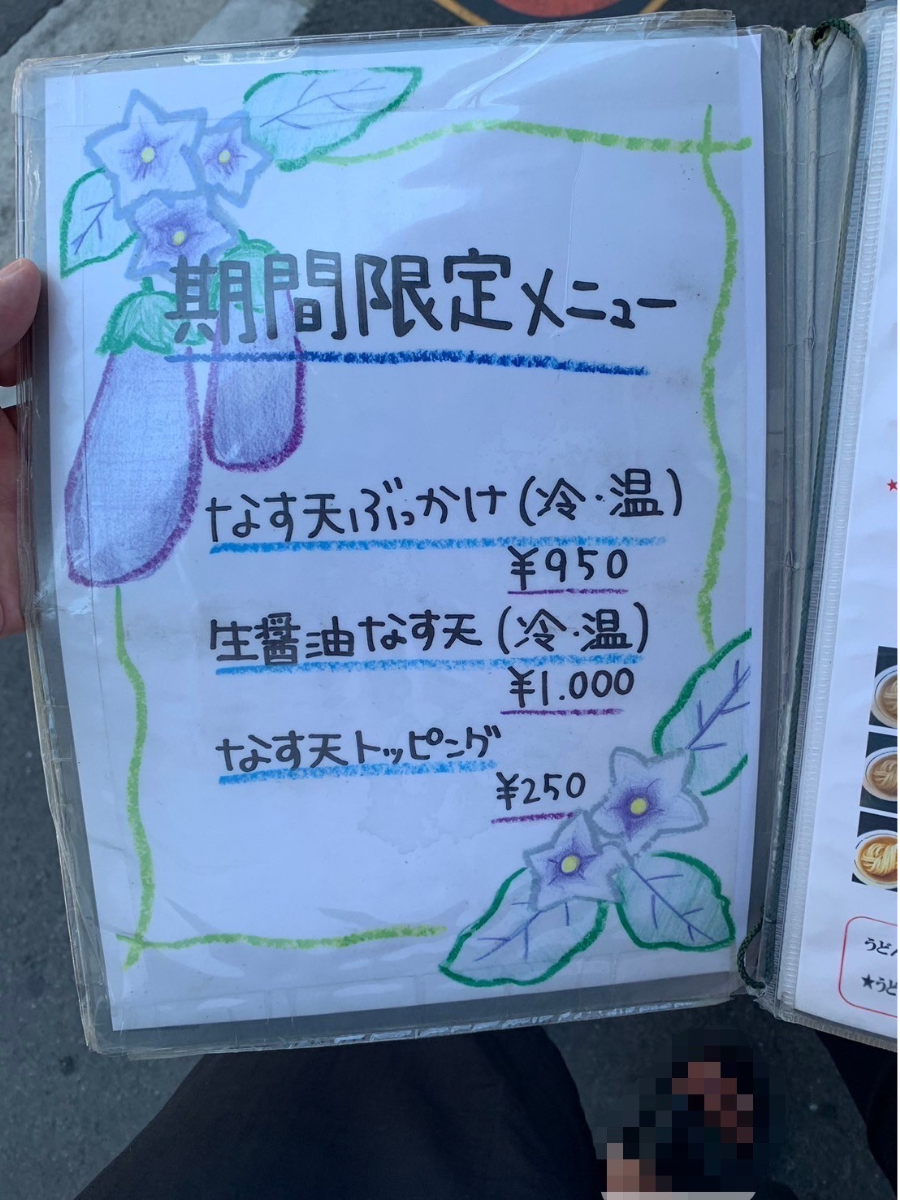 期間限定メニュー
なす天ぶっかけ(冷・温)
¥950
生醤油なす天(冷・温)
¥1.000
なす天トッピング
¥250
うどん
★うど